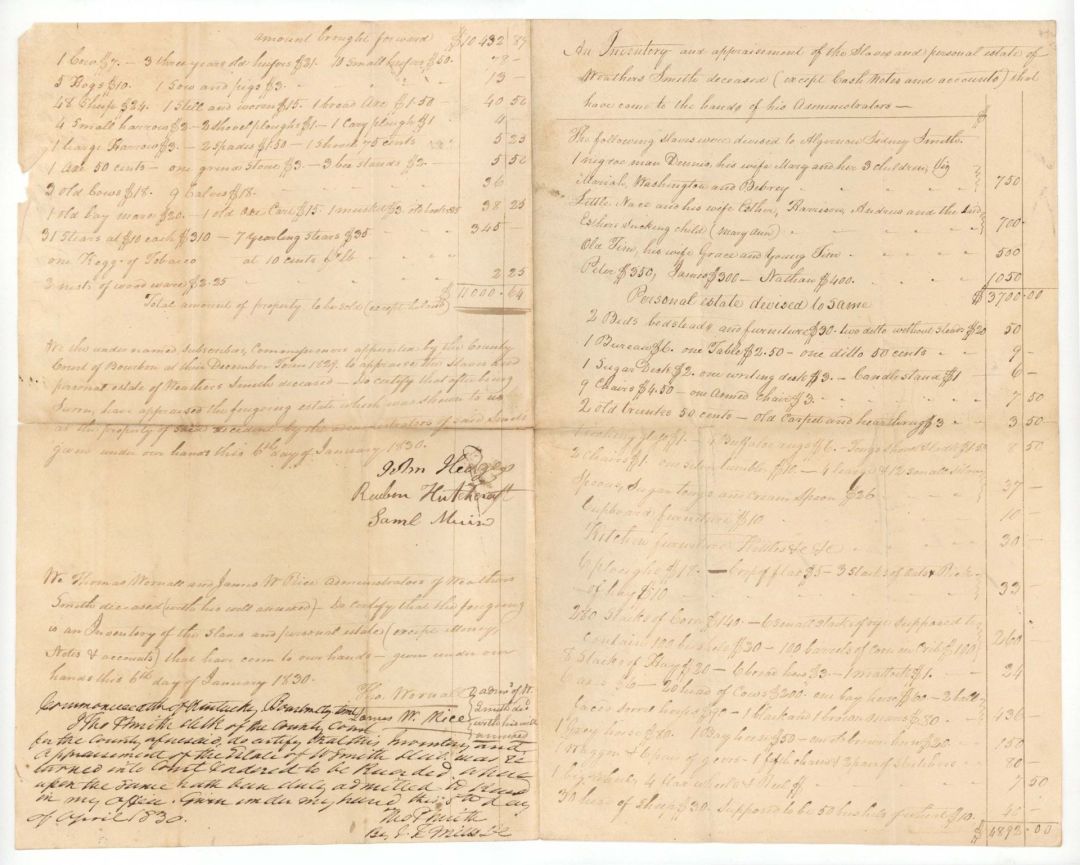 amount brought forward $10432 89
1 Cow $7. – 3 three year old heifers $21. 10 small heifers $50. 78 –
5 Hogs $10. 1 Sow and pigs $3. 13 –
48 Sheep $24. 1 Still and worm $15. 1 broad Axe $1.50 – 40 50
4 Small harrows $2 – 2 shovel ploughs $1 – 1 Cary plough $1 4
1 large Harrow $3. – 2 Spades $1.50 – 1 shovel 75 cents 5 25
1 Axe 50 cents – one grind Stone $3 – 3 bee stands $2. 5 50
2 old Cows $18. 9 Calves $18. 36
1 old bay mare $20. – 1 old Ox Cart $15. 1 musket $3 38 25
31 Stears at $10 each $310 – 7 yearling Stears $35 345 –
one Kegg of Tobacco at 10 cents p lb
3 nests of wood ware $2.25 2 25
Total amount of property to be sold (except tobacco) $11000.64
We the undernamed, subscribers, Commissioners appointed by the County
Court of Bourbon at their December Term 1829. to appraise the Slaves and
personal estate of Weathers Smith deceased – Do certify that after being
Sworn, have appraised the foregoing estate which was shewn to us
as the property of said decedent by the administrators of said Smith
given under our hands this 6th day of January 1830.
John Hedges
Reuben Hutchcraft
Saml Muir
We Thomas Wornall and James W Rice administrators of Weathers
Smith deceased (with his will annexed) – Do certify that the foregoing
is an Inventory of the Slaves and personal estate (except Money,
Notes & accounts) that have come to our hands – given under our
hands this 6th day of January 1830.
Tho. Wornall
James W. Rice
admrs of W.
Smith decd
with his will
annexed
Commonwealth of Kentucky, Bourbon County
I Tho P Smith clerk of the County Court
for the County aforesaid, do certify that this Inventory and
appraisement of the Estate of W Smith decd. was re
turned into Court & ordered to be Recorded, where
upon the same hath been duly admitted to Record
in my office. Given under my hand this 5th day
of April 1830.
Tho P Smith
By J. L. Mills DC
An Inventory and appraisement of the Slaves and personal estate of
Weathers Smith deceased (except Cash Notes and accounts) that
have come to the hands of his Administrators –
$
The following Slaves were devised to Algernon Sidney Smith.
1 negroe man Dennis, his wife Mary and her 3 children, Viz
Mariah, Washington and Debrey 750
Little Nace and his wife Esther, Harrison, Andrew and the said
Esthers sucking child (Mary Ann) 700
Old Tim, his wife Grace and Young Tim 500
Peter $350, James $300 – Nathan $400. 1050
$3700.00
Personal estate devised to same
2 Beds bedsteads and furniture $30. two ditto without steads $20 50
1 Bureau $6. one Table $2.50 – one ditto 50 cents 9 –
1 Sugar Desk $2. one writing desk $3. – Candlestand $1 6 –
9 Chairs $4.50 – one Armed Chair $3. 7 50
2 old trunks 50 cents – old Carpet and hearth rug $3 3 50
1 looking glass $1 – 1 Buffaloe rugs $6 – Tongs shovel & ladle $1.50 8 50
2 Chairs $1. one silver tumbler $10 – 4 large & 12 small silver
Spoons, Sugar tongs and Cream Spoon $26 37 –
Cupboard furniture $10 10 –
Kitchen furniture Kettles &c &c 30 –
6 ploughs $18. – Crop of flax $5 – 3 Stacks of Oats & Rick
of hay $10 33
280 Stacks of Corn $140. – 6 small stacks of rye supposed to
contain 100 bushels $20 – 100 barrels of Corn in Crib $100 260
8 Stacks of Hay $20 – 6 broad hoes $3 – 1 mattock $1. 24
20 head of Cows $200. one bay horse $30 – 2 bald
faced sorrel horses – 1 black and 1 brown mare $80 436 –
1 Gray horse $60. 1 Bay horse $50 – one brown horse $40 150
1 Waggon & 4 pair of gears – 1 fifth chain & 2 pair of stretchers 80 –
7 50
30 head of Sheep $30. Supposed to be 50 bushels of wheat 46 –
$4892.00